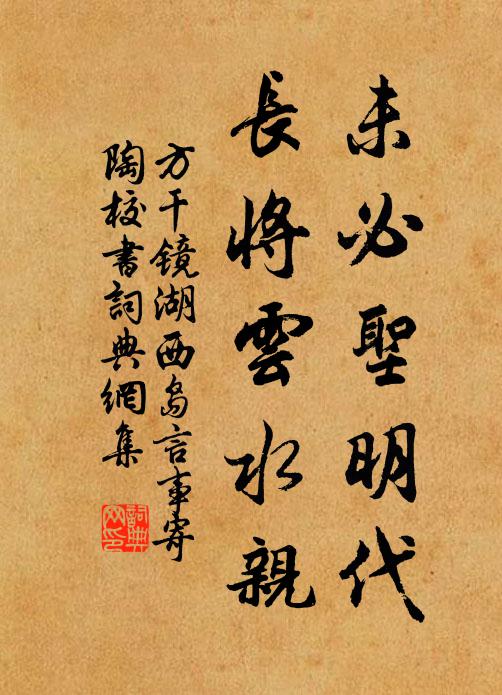 未必聖明代
長將雲水親
方干鏡湖西島言事寄
陶校書詞典網集
詞典網印